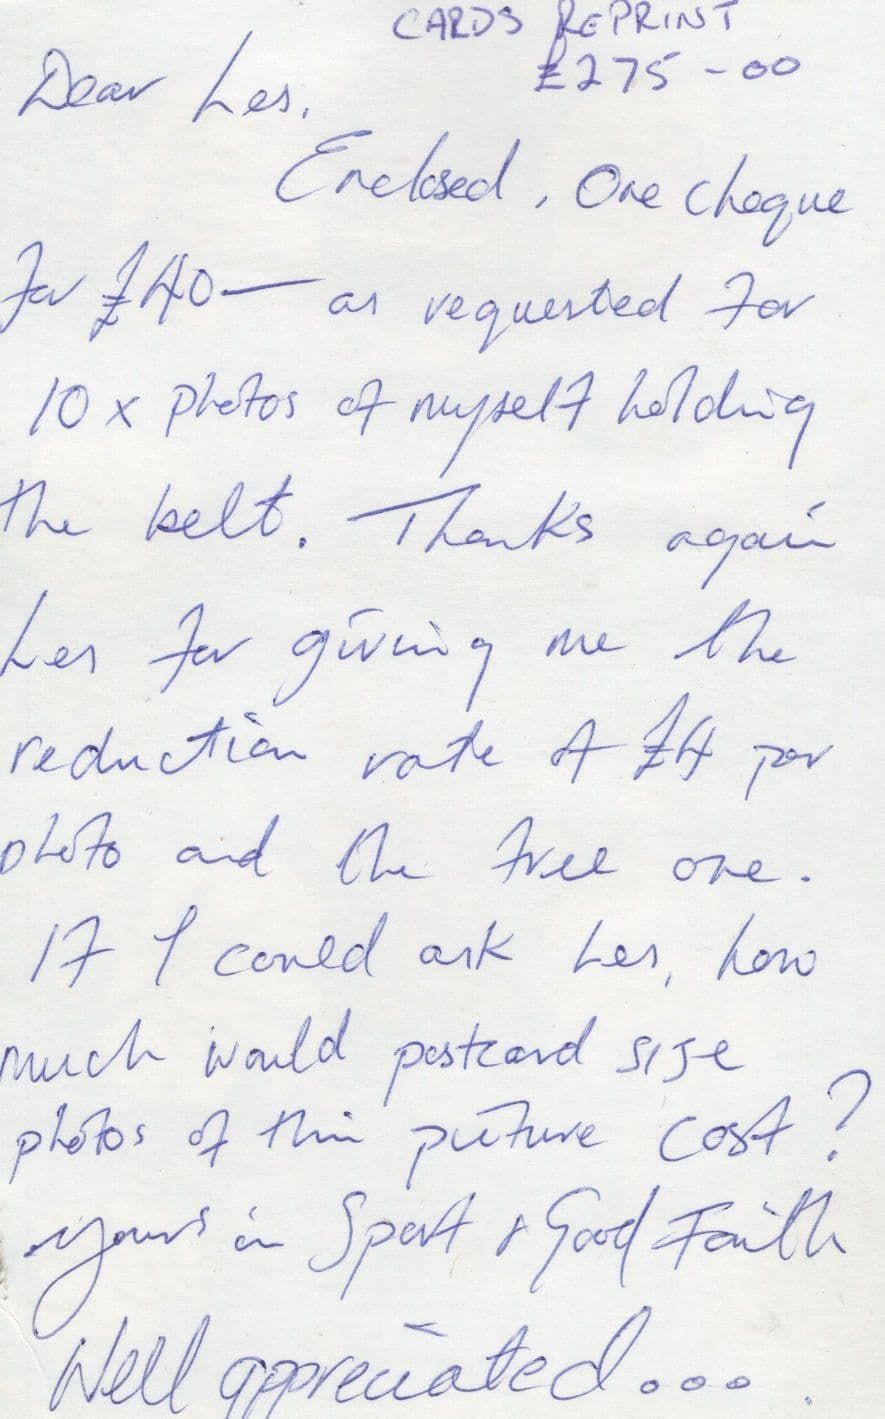 CARDS REPRINT
£275-00
Dear Les,
Enclosed, One cheque
for £40— as requested for
10 x photos of myself holding
the belt. Thanks again
Les for giving me the
reduction rate of £4 per
photo and the free one.
If I could ask Les, how
much would postcard size
photos of this picture cost?
Yours in Sport & Good Faith
Well appreciated...